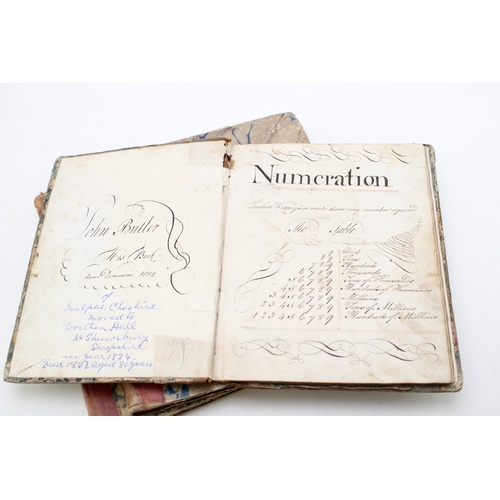 John Butler
His Book
Anno Domini 1802
of
Malpas, Cheshire
moved to
Worthen Hall
Nr Shrewsbury
Shropshire
in year 1824.
Died 1857 Aged 80 years
Numeration
any number required
The Table
9 Units
89 Tens
789 Hundreds
6789 Thousands
56789 Tens of Thousands
456789 Hundreds of Thousands
3456789 Millions
23456789 Tens of Millions
123456789 Hundreds of Millions